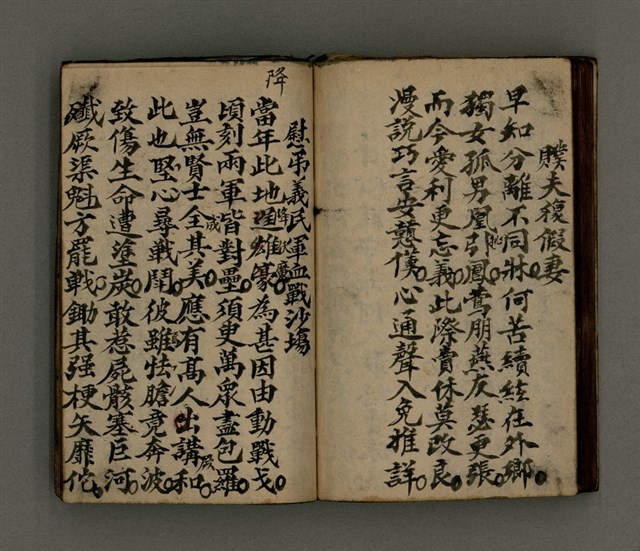 賤夫複假妻
早知分離不同牀何苦續絃在外鄉
獨女孤男凰引鳳鶯朋燕友瑟更張
而今愛利更忘義此際賣休莫改良
漫說巧言安慰僕心通聲入免推詳
降
慰弔義民軍血戰沙場
當年此地遇雄豪為甚因由動戰戈
頃刻兩軍皆對壘須臾萬眾盡包羅
豈無賢士全其美應有高人出講和
成
此也堅心尋戰鬪彼雖怯膽竟奔波
致傷生命遭塗炭敢惹屍骸塞巨河
殲厥渠魁方罷戰鋤其强梗矢靡佗